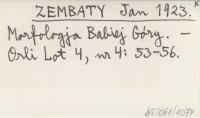 ZEMBATY Jan 1923.
Morfologja Babiej Góry. —
Orli Lot 4, nr 4: 53-56.